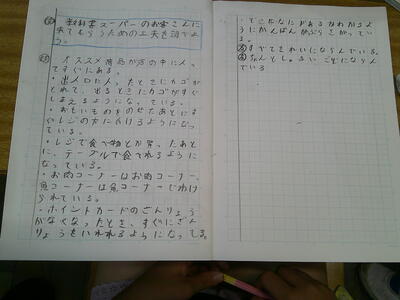 教科書スーパーのお客さんに
来てもらうための工夫を調べよ
う。
オススメ商品が店の中に入っ
てすぐにある。
・出入口に入ったときにカゴが
とれて、出るときにカゴがすぐ
しまえるようになっている。
・おもいものをのせたあとにす
ぐレジの方に行けるようになっ
ている。
・レジで食べ物とか買ったあと
に、テーブルで食べれるように
なっている。
・お肉コーナーはお肉コーナー、
魚コーナーは魚コーナーでわけ
られている。
・ポイントカードのざんりょう
がなくなったとき、すぐにざん
りょうをいれれるようになってる。
・どこになにがあるかわかるよ
うにかんばんがぶらさがってい
る。
すべてきれいにならんでいる。
なんとしゅるいごとにならん
でいる